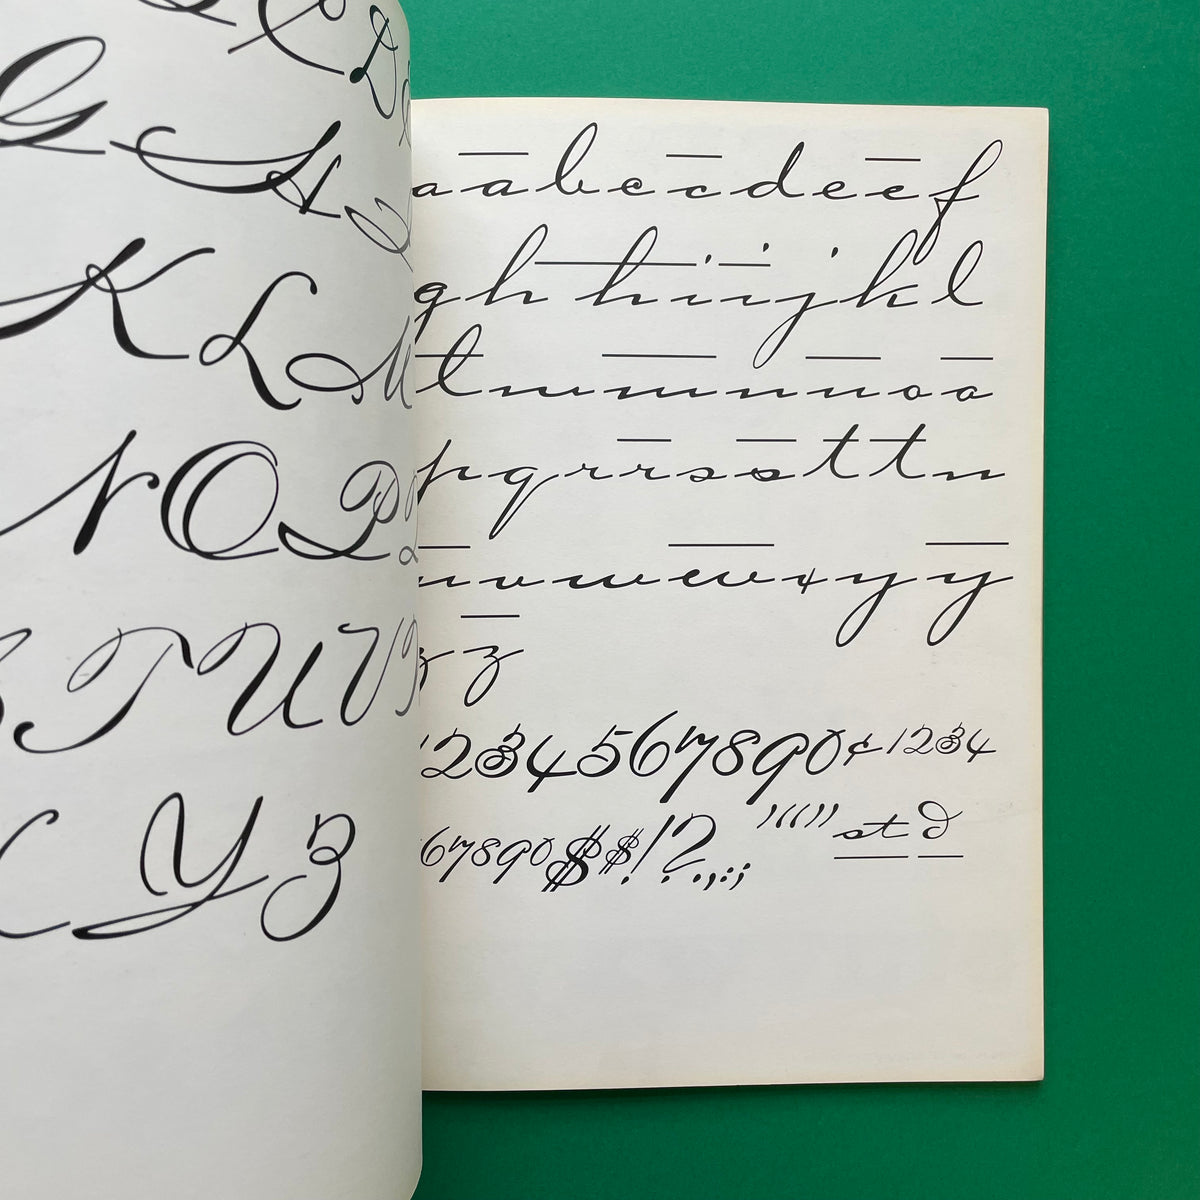 C D
G H
K L M
N O P
T U V
Y Z
a a b c c d e e f
g h h i i j k l
l m m n n o o
p q r r s s t t u
u v w w x y y
z z
1234567890¢1234
67890$$!?.,:; ’‘“” st d